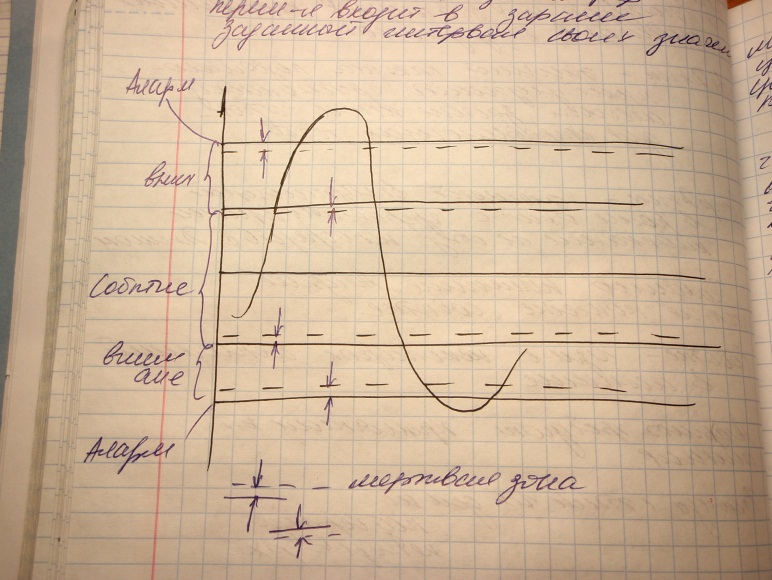 входит в зарание
заданной интервал своих значен
Аларм
вним
Событие
вним
ание
Аларм
мертвая зона